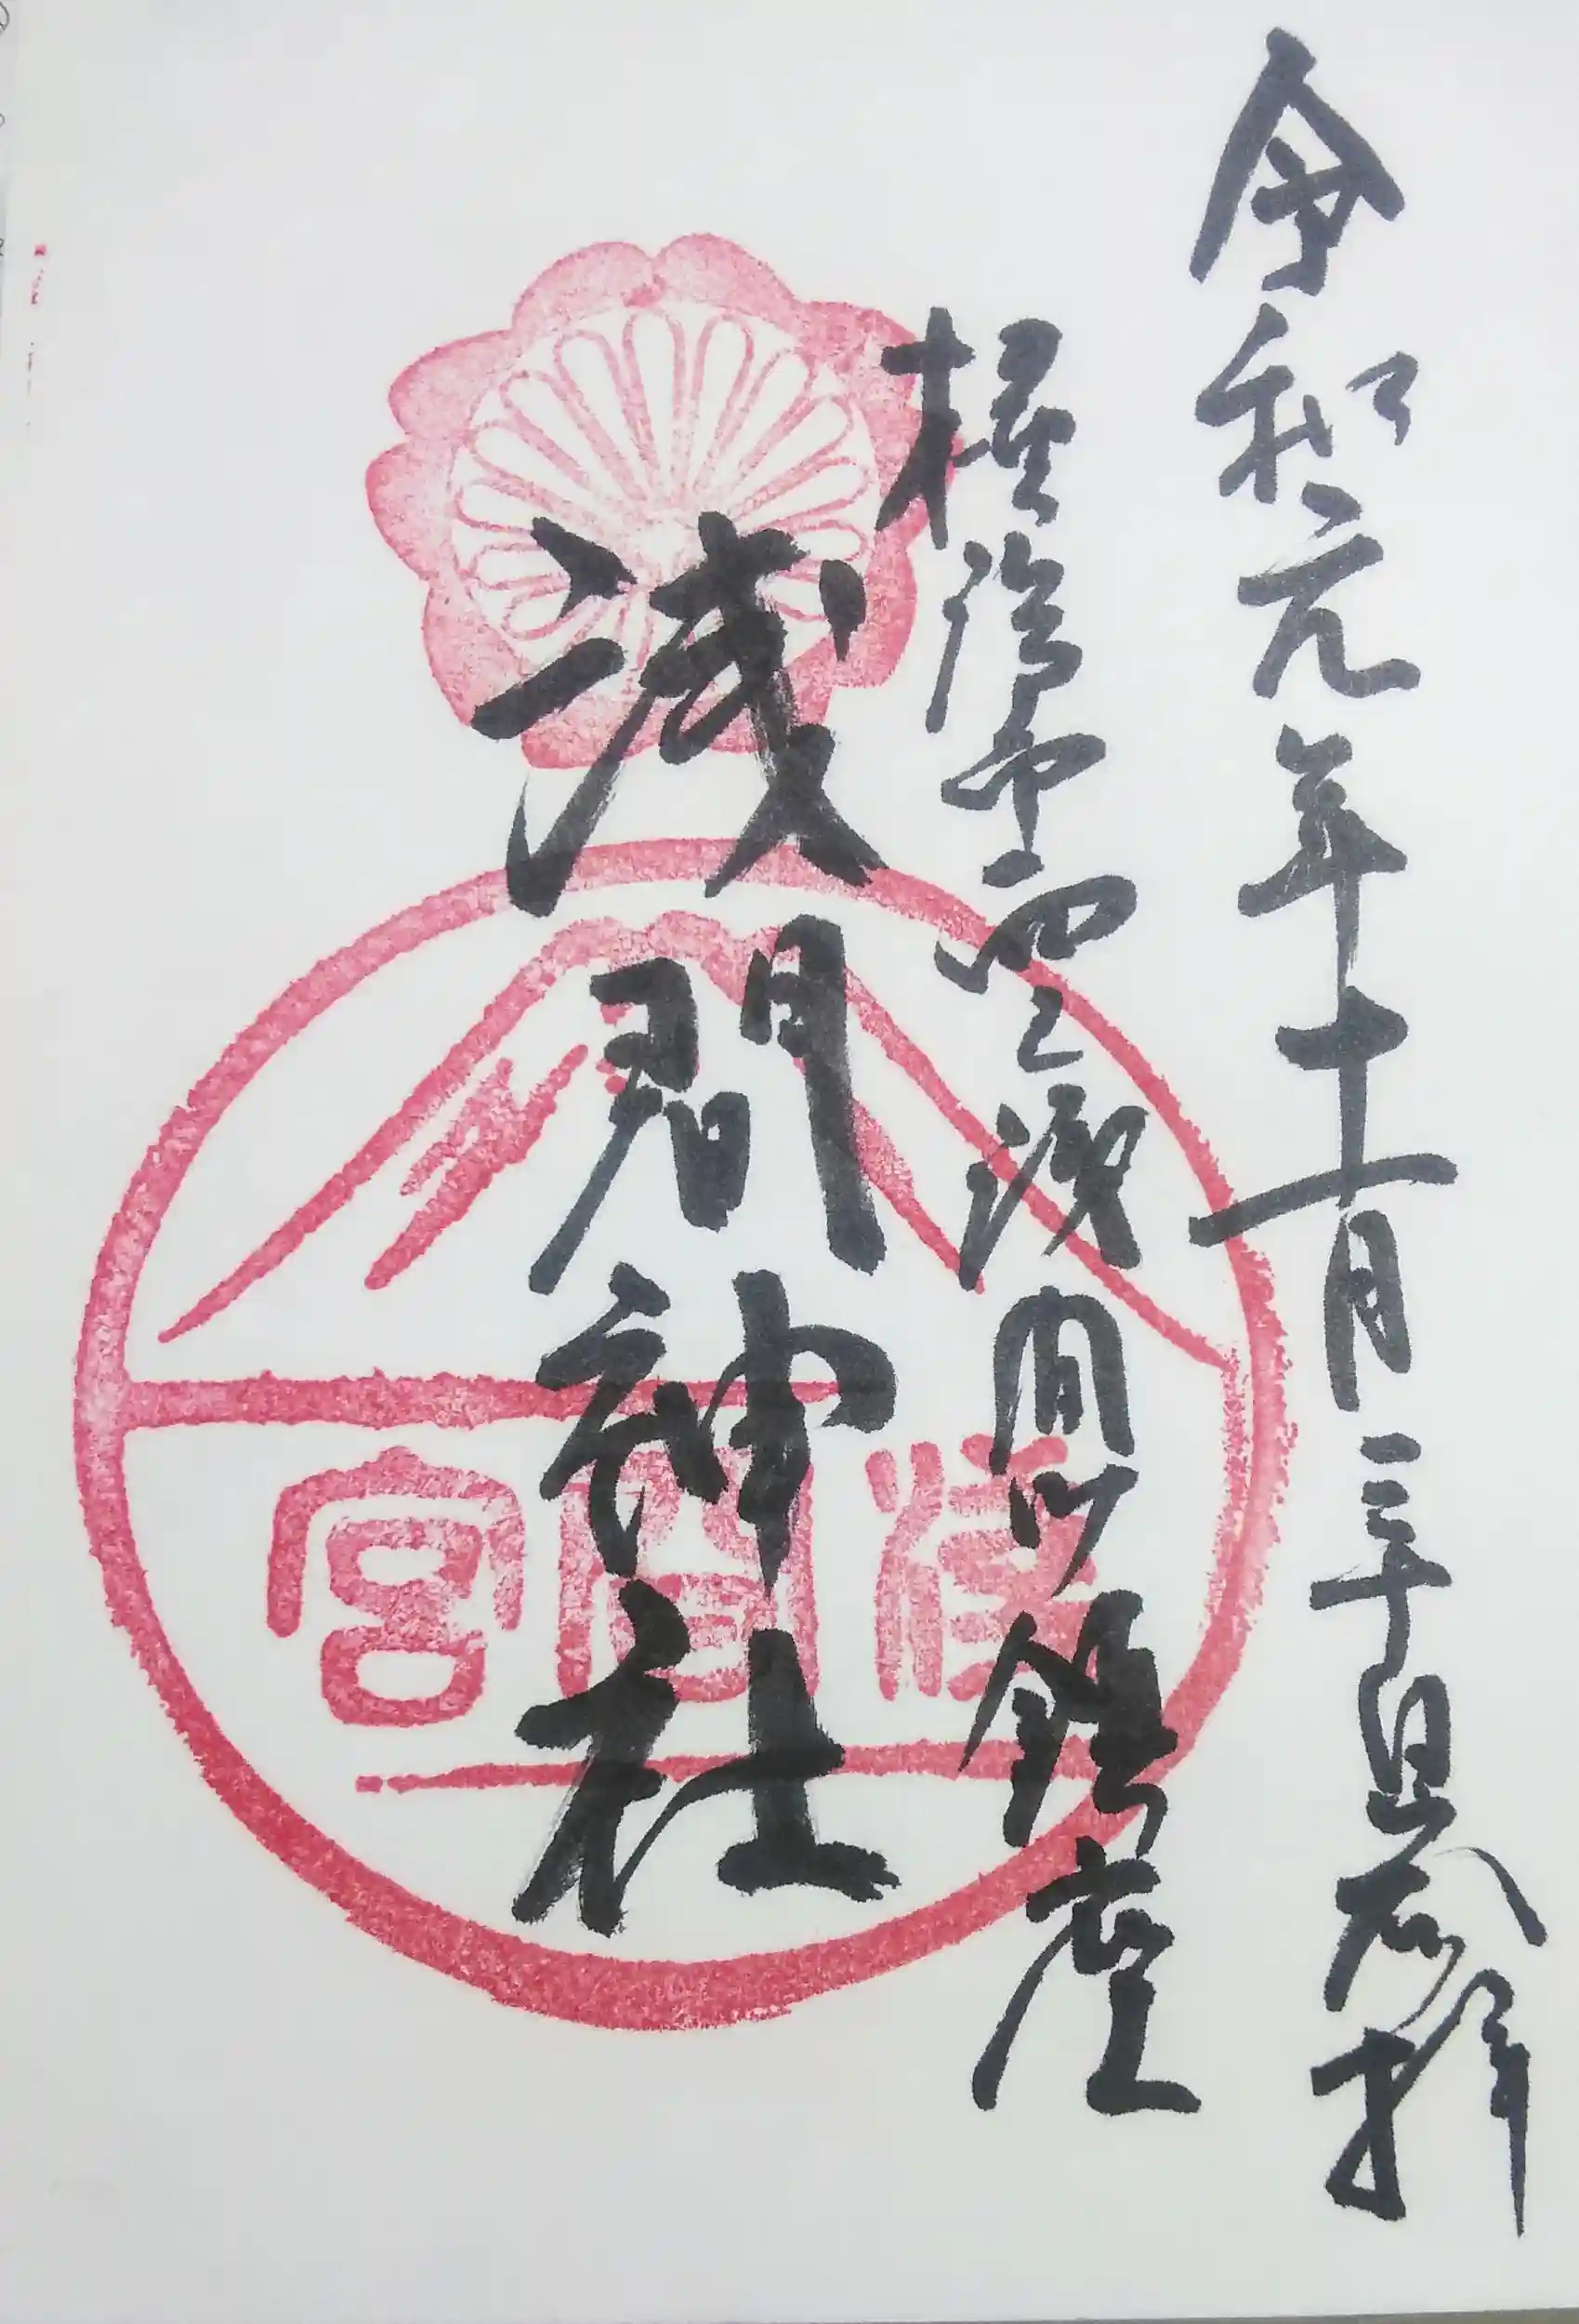 令和元年十一月三十日奉拝
横浜市西区浅間町鎮座
浅間神社
浅間宮